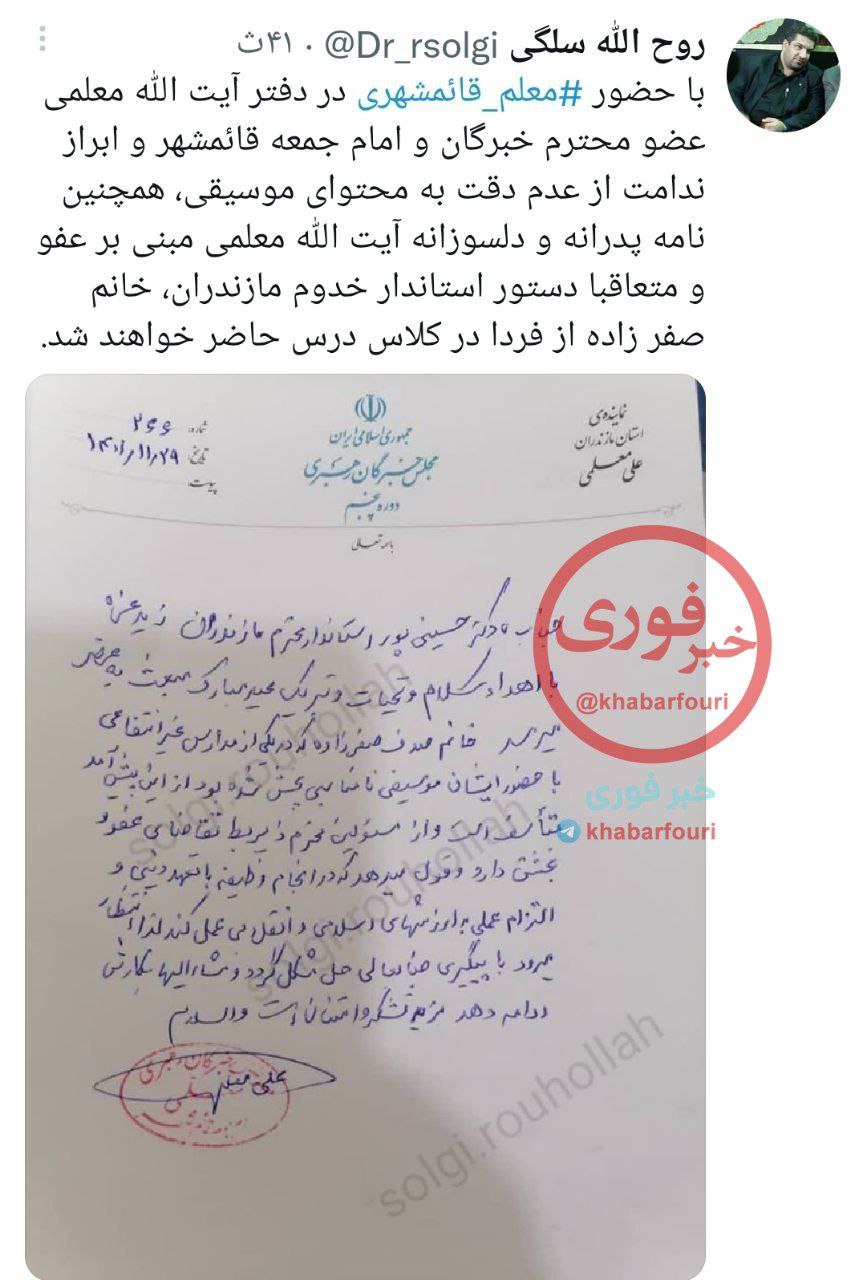 روح الله سلگی @Dr_rsolgi · ۴۱ث
با حضور #معلم_قائمشهری در دفتر آیت الله معلمی
عضو محترم خبرگان و امام جمعه قائمشهر و ابراز
ندامت از عدم دقت به محتوای موسیقی، همچنین
نامه پدرانه و دلسوزانه آیت الله معلمی مبنی بر عفو
و متعاقبا دستور استاندار خدوم مازندران، خانم
صفر زاده از فردا در کلاس درس حاضر خواهند شد.
نماینده‌ی
استان مازندران
علی معلمی
جمهوری اسلامی ایران
مجلس خبرگان رهبری
دوره پنجم
شماره ۲۶۶
تاریخ ۱۴۰۱/۱۱/۲۹
پیوست
باسمه تعالی
جناب دکتر حسینی پور استاندار محترم مازندران زید عزه
با اهداء سلام و تحیات و تبریک عید مبارک مبعث به عرض
میرسد خانم صدف صفرزاده که در یکی از مدارس غیر انتفاعی
با حضور ایشان موسیقی نامناسبی پخش شده بود از این پیش آمد
متأسف است و از مسئولین محترم ذیربط تقاضای عفو و
بخشش دارد و قول میدهد که در انجام وظیفه با تعهد دینی و
التزام عملی به ارزشهای اسلامی و انقلابی عمل کند لذا انتظار
میرود با پیگیری جنابعالی حل مشکل گردد و مشارالیها بکارش
ادامه دهد مزید تشکر و امتنان است والسلام
علی معلمی
خبر فوری
@khabarfouri
خبر فوری
khabarfouri
solgi.rouhollah
solgi.rouhollah
solgi.rouhollah